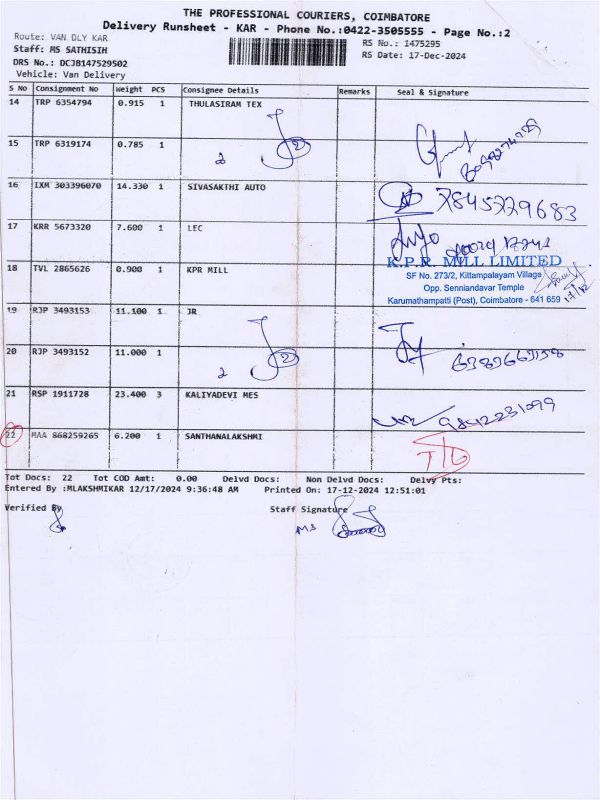 THE PROFESSIONAL COURIERS, COIMBATORE
Delivery Runsheet - KAR - Phone No.:0422-3505555 - Page No.:2
Route: VAN DLY KAR
RS No.: 1475295
Staff: MS SATHISIH
RS Date: 17-Dec-2024
DRS No.: DCJB147529502
Vehicle: Van Delivery
S No Consignment No Weight PCS Consignee Details Remarks Seal & Signature
14 TRP 6354794 0.915 1 THULASIRAM TEX
15 TRP 6319174 0.785 1
2
16 IXM 303396070 14.330 1 SIVASAKTHI AUTO
7845779683
17 KRR 5673320 7.600 1 LEC
K.P.R. MILL LIMITED
18 TVL 2865626 0.900 1 KPR MILL
SF No. 273/2, Kittampalayam Village
Opp. Senniandavar Temple
Karumathampatti (Post), Coimbatore - 641 659
17/12
19 RJP 3493153 11.100 1 JR
20 RJP 3493152 11.000 1
2
21 RSP 1911728 23.400 3 KALIYADEVI MES
9842231099
22 MAA 868259265 6.200 1 SANTHANALAKSHMI
Tot Docs: 22 Tot COD Amt: 0.00 Delvd Docs: Non Delvd Docs: Delvy Pts:
Entered By :MLAKSHMIKAR 12/17/2024 9:36:48 AM Printed On: 17-12-2024 12:51:01
Verified By
Staff Signature
MS